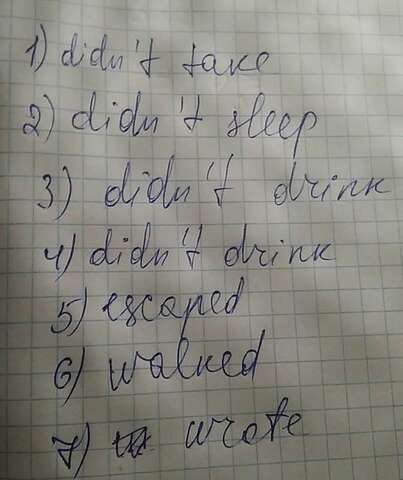 1) didn't take
2) didn't sleep
3) didn't drink
4) didn't drink
5) escaped
6) walked
7) wrote